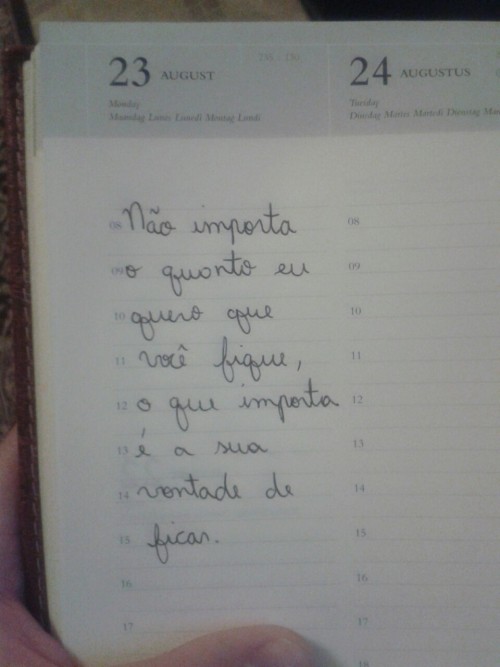 23 AUGUST
Monday
Maandag Lunes Lunedì Montag Lundi
24 AUGUSTUS
Tuesday
Dinsdag Martes Martedì Dienstag
08 Não importa
09 o quanto eu
10 quero que
11 você fique,
12 o que importa
13 é a sua
14 vontade de
15 ficar.
16
17
08
09
10
11
12
13
14
15
16
17
18